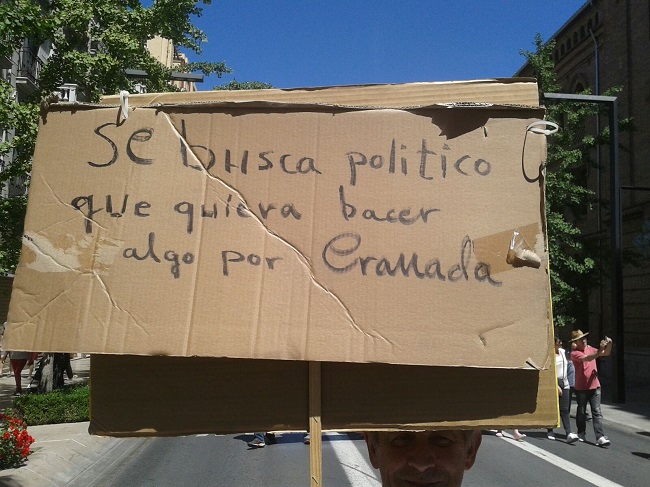 Se busca politico
que quiera bacer
algo por Granada